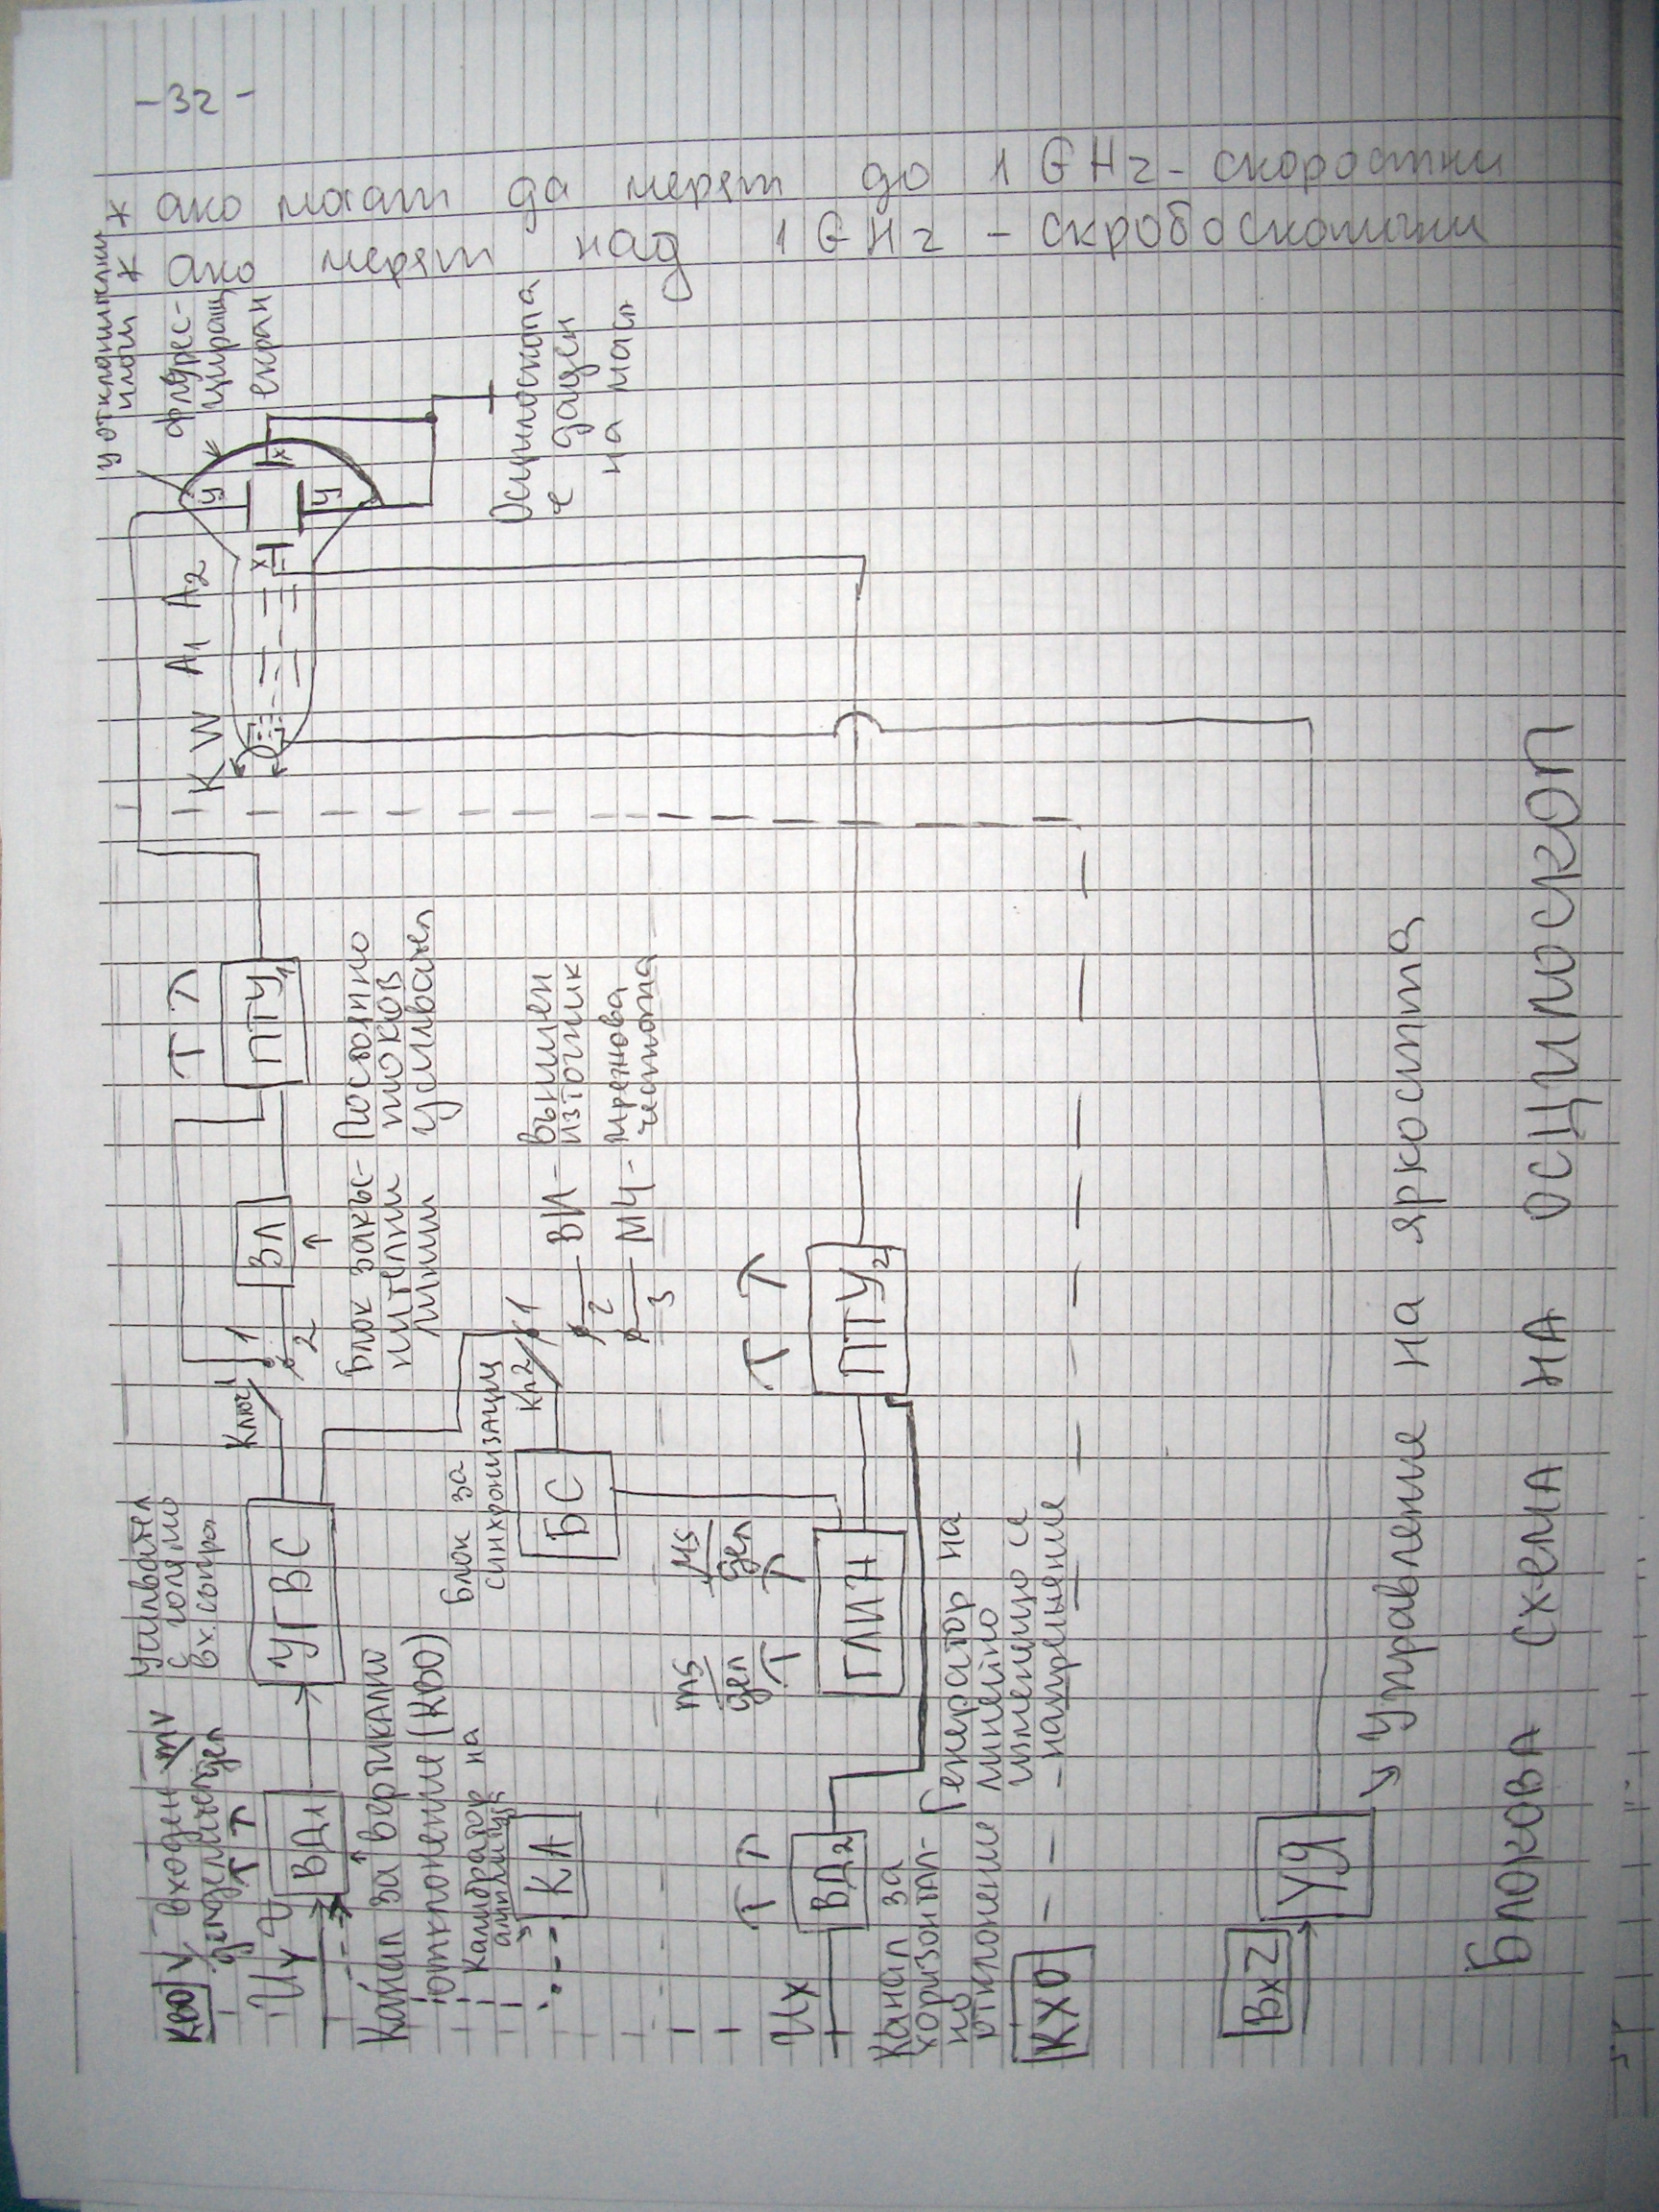 -32-
* ако могат да мерят до 1 GHz - скоростни
* ако мерят над 1 GHz - скробоскопични
У отклонителни
флурес-
циращ
екран
K W A1 A2
У
У
X
X
Осцилоскопа
е даден
на маса
КВО
У входен
делител
mV
дел
Uy
ВД1
Усилвател
с голямо
вх. съпр.
УГВС
Ключ1
1
2
ЗЛ
ПТУ1
Блок закъс-
нителни
линии
Постоянно
токов
усилвател
Канал за вертикално
отклонение (КВО)
Калибратор на
амплитуда
КА
Блок за
синхронизация
БС
Кл2
1
2
3
ВИ - Външен
източник
МЧ - мрежова
честота
Ux
ВД2
ms
дел
μs
дел
ГЛИН
ПТУ2
Канал за
хоризонтал-
но
отклонение
КХО
Генератор на
линейно
изменящо се
напрежение
Вх Z
УЯ
Управление на яркостта
Блокова схема на осцилоскоп